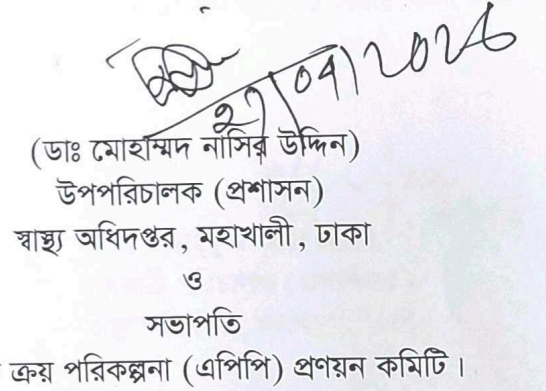 (ডাঃ মোহাম্মদ নাসির উদ্দিন)
উপপরিচালক (প্রশাসন)
স্বাস্থ্য অধিদপ্তর, মহাখালী, ঢাকা
ও
সভাপতি
ক্রয় পরিকল্পনা (এপিপি) প্রণয়ন কমিটি।